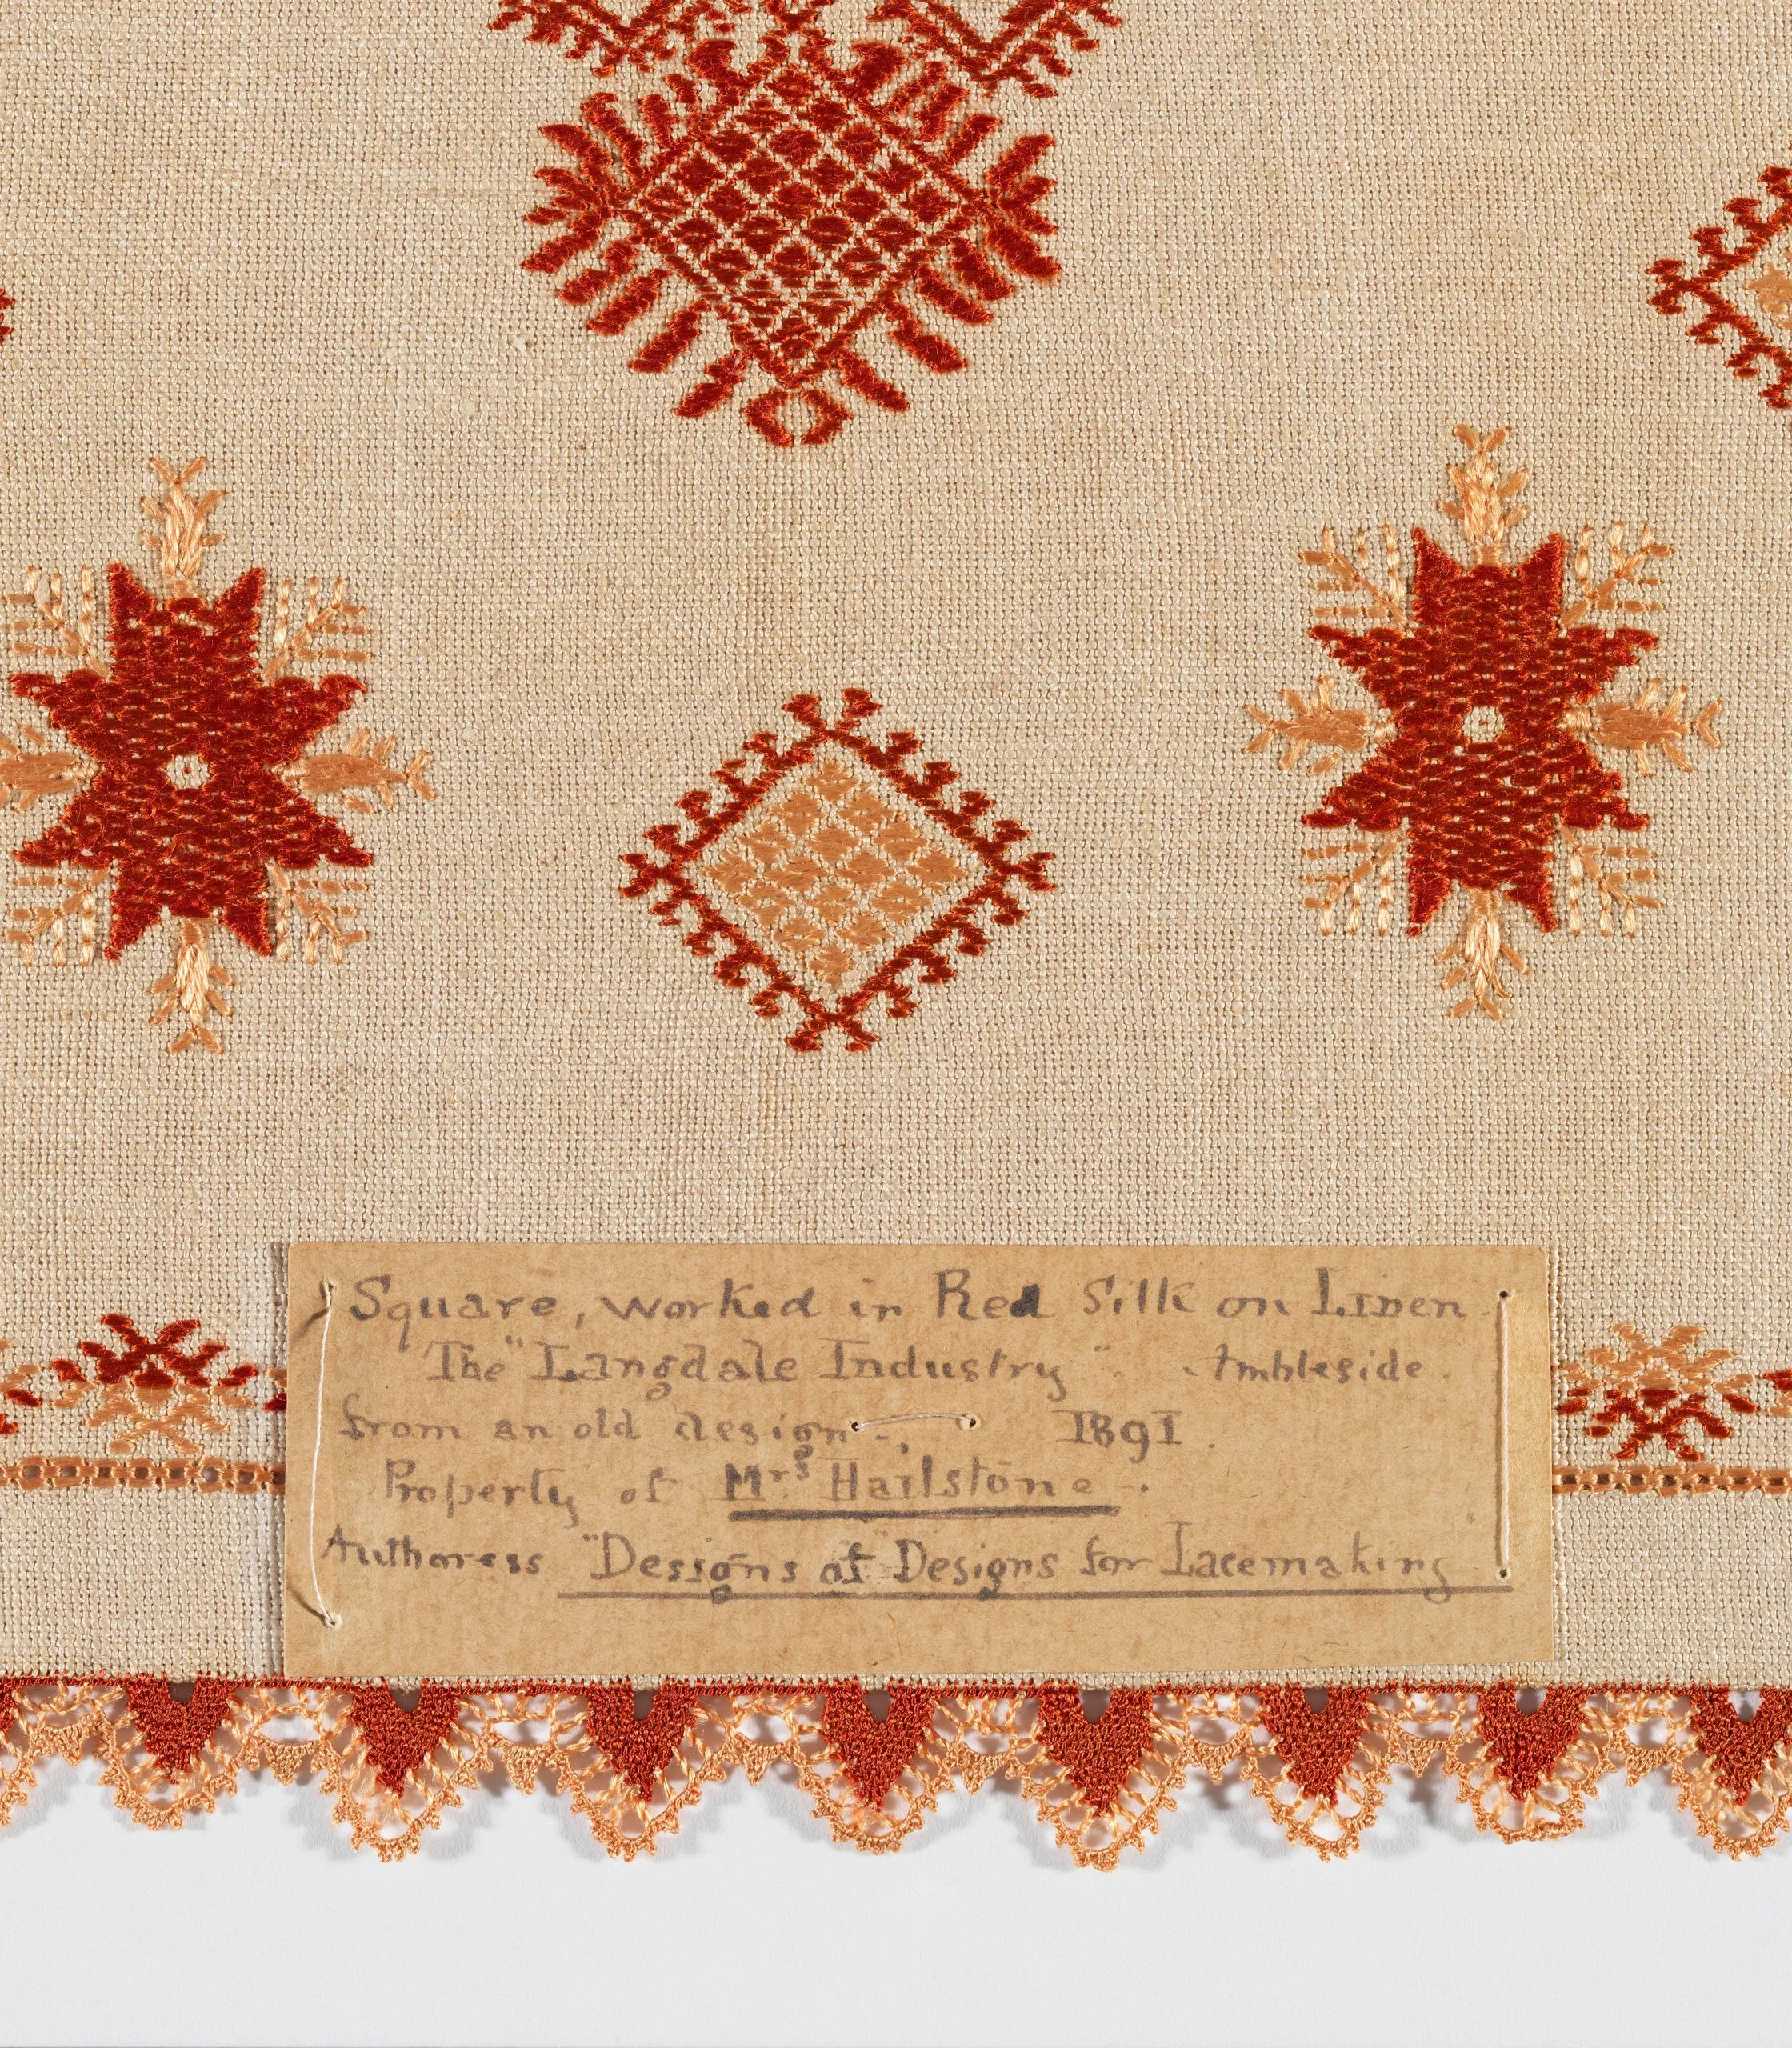 Square, worked in Red Silk on Linen -
The "Langdale Industry" Ambleside.
from an old design -. 1891.
Property of Mrs Hailstone -.
Authoress "Designs of" Designs for Lacemaking